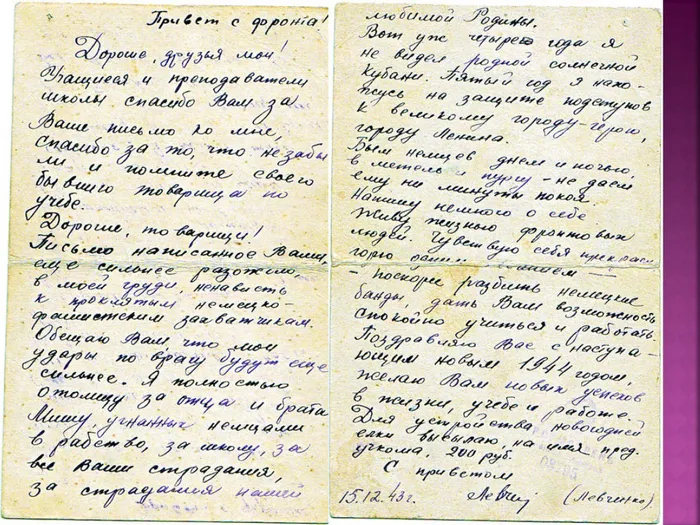 Привет с фронта!
Дорогие, друзья мои!
Учащиеся и преподаватели
школы спасибо Вам за
Ваше письмо ко мне,
спасибо за то, что не забы
ли и помните своего
бывшего товарища по
учебе.
Дорогие, товарищи!
Письмо написанное Вами,
еще сильнее разожгло,
в моей груди, ненависть
к проклятым немецко-
фашистским захватчикам.
Обещаю Вам, что мои
удары по врагу будут еще
сильнее. Я полностью
отомщу за отца и брата
Мишу, угнанных немцами
в рабство, за школу, за
все Ваши страдания,
за страдания нашей
любимой Родины.
Вот уж четыре года я
не видел родной солнечной
Кубани. Пятый год я нахо-
жусь на защите подступов
к великому городу-герою,
городу Ленина.
Бьем немцев днем и ночью,
в метель и пургу - не даем
ему ни минуты покоя.
Напишу немного о себе
Живу жизнью фронтовых
людей. Чувствую себя прекрасно
горю
- поскорей разбить немецкие
банды, дать Вам возможность
спокойно учиться и работать.
Поздравляю Вас с наступа-
ющим новым 1944 годом,
желаю Вам новых успехов
в жизни, учебе и работе.
Для устройства новогодней
елки высылаю, на имя пред.
учкома, 200 руб.
С приветом
15.12.43 г. (Левченко)